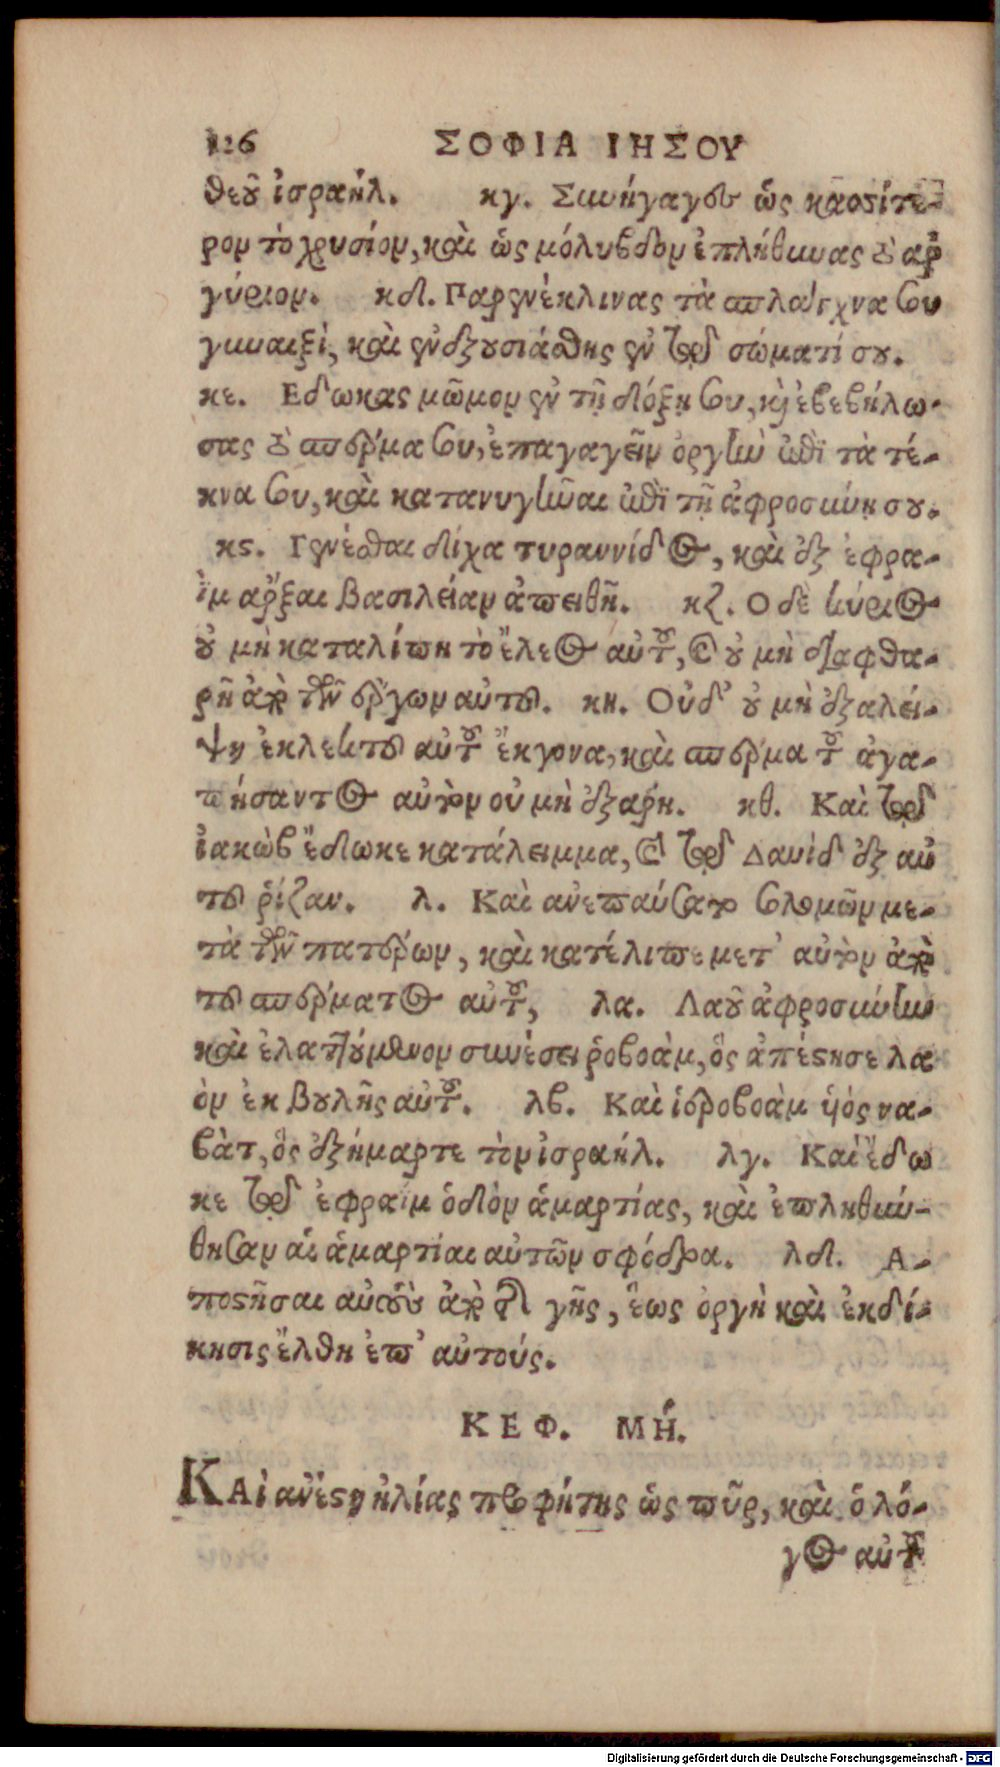 126 ΣΟΦΙΑ ΙΗΣΟΥ
θεοῦ ἰσραήλ. κγ. Συνήγαγες ὡς κασσίτε-
ρον τὸ χρυσίον, καὶ ὡς μόλυβδον ἐπλήθυνας τὸ ἀρ
γύριον. κδ. Παρενέκλινας τὰ σπλάγχνα σου
γυναιξὶ, καὶ ἐνεξουσιάσθης ἐν τῷ σώματί σου.
κε. Εδωκας μῶμον ἐν τῇ δόξῃ σου, καὶ ἐβεβήλω-
σας τὸ σπέρμα σου, ἐπαγαγεῖν ὀργὴν ἐπὶ τὰ τέ-
κνα σου, καὶ κατανυγῆναι ἐπὶ τῇ ἀφροσύνῃ σου.
κς. Γενέσθαι δίχα τυραννίδος, καὶ ἐξ ἐφρα-
ῒμ ἄρξαι βασιλείαν ἀπειθῆ. κζ. Ο δὲ κύριος
οὐ μὴ καταλίπῃ τὸ ἔλεος αὐτοῦ, καὶ οὐ μὴ διαφθα-
ρῇ ἀπὸ τῶν ἔργων αὐτοῦ. κη. Οὐδ’ οὐ μὴ ἐξαλεί-
ψῃ ἐκλεκτοῦ αὐτοῦ ἔκγονα, καὶ σπέρμα τοῦ ἀγα-
πήσαντος αὐτὸν οὐ μὴ ἐξάρῃ. κθ. Καὶ τῷ
ἰακὼβ ἔδωκε κατάλειμμα, καὶ τῷ Δαυὶδ ἐξ αὐ
τοῦ ῥίζαν. λ. Καὶ ἀνεπαύσατο σολομῶν με-
τὰ τῶν πατέρων, καὶ κατέλιπε μετ’ αὐτὸν ἀπὸ
τοῦ σπέρματος αὐτοῦ, λα. Λαοῦ ἀφροσύνην
καὶ ἐλαττούμενον συνέσει ῥοβοὰμ, ὃς ἀπέστησε λα
ὸν ἐκ βουλῆς αὐτοῦ. λβ. Καὶ ἱεροβοὰμ υἱὸς να-
βὰτ, ὃς ἐξήμαρτε τὸν ἰσραήλ. λγ. Καὶ ἔδω
κε τῷ ἐφραῒμ ὁδὸν ἁμαρτίας, καὶ ἐπληθύν-
θησαν αἱ ἁμαρτίαι αὐτῶν σφόδρα. λδ. Α-
ποστῆσαι αὐτοὺς ἀπὸ τῆς γῆς, ἕως ὀργὴ καὶ ἐκδί-
κησις ἔλθῃ ἐπ’ αὐτούς.
ΚΕΦ. ΜΗ.
ΚΑὶ ἀνέστη ἠλίας προφήτης ὡς πῦρ, καὶ ὁ λό-
γος αὐτοῦ
Digitalisierung gefördert durch die Deutsche Forschungsgemeinschaft - DFG